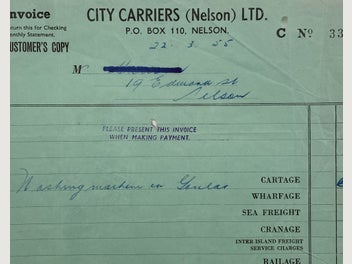 Invoice
CITY CARRIERS (Nelson) LTD.
Return this for Checking
Monthly Statement.
P.O. BOX 110, NELSON.
C Nº 33
CUSTOMER'S COPY
22. 3. 55
M
19 Edmond St
Nelson
PLEASE PRESENT THIS INVOICE
WHEN MAKING PAYMENT.
Washing machine ex
CARTAGE
WHARFAGE
SEA FREIGHT
CRANAGE
INTER ISLAND FREIGHT
SERVICE CHARGES
RAILAGE